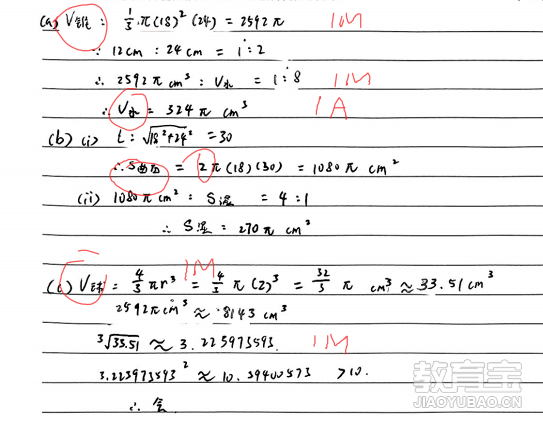 (a) V锥: 1/3 · π(18)²(24) = 2592π 1M
∵ 12cm : 24cm = 1:2
∴ 2592π cm³ : V水 = 1:8 1M
∴ V水 = 324π cm³ 1A
(b) (i) L: √18²+24² = 30
∴ S曲面 = 2π(18)(30) = 1080π cm²
(ii) 1080π cm² : S湿 = 4:1
∴ S湿 = 270π cm²
(c) V球 = 4/3 πr³ = 4/3 π(2)³ = 32/3 π cm³ ≈ 33.51cm³ 1M
2592πcm³ ≈ 8143 cm³
³√33.51 ≈ 3.223973593 1M
3.223973593² ≈ 10.39400573 >10.
∴ 会
教育宝
JIAOYUBAO.CN